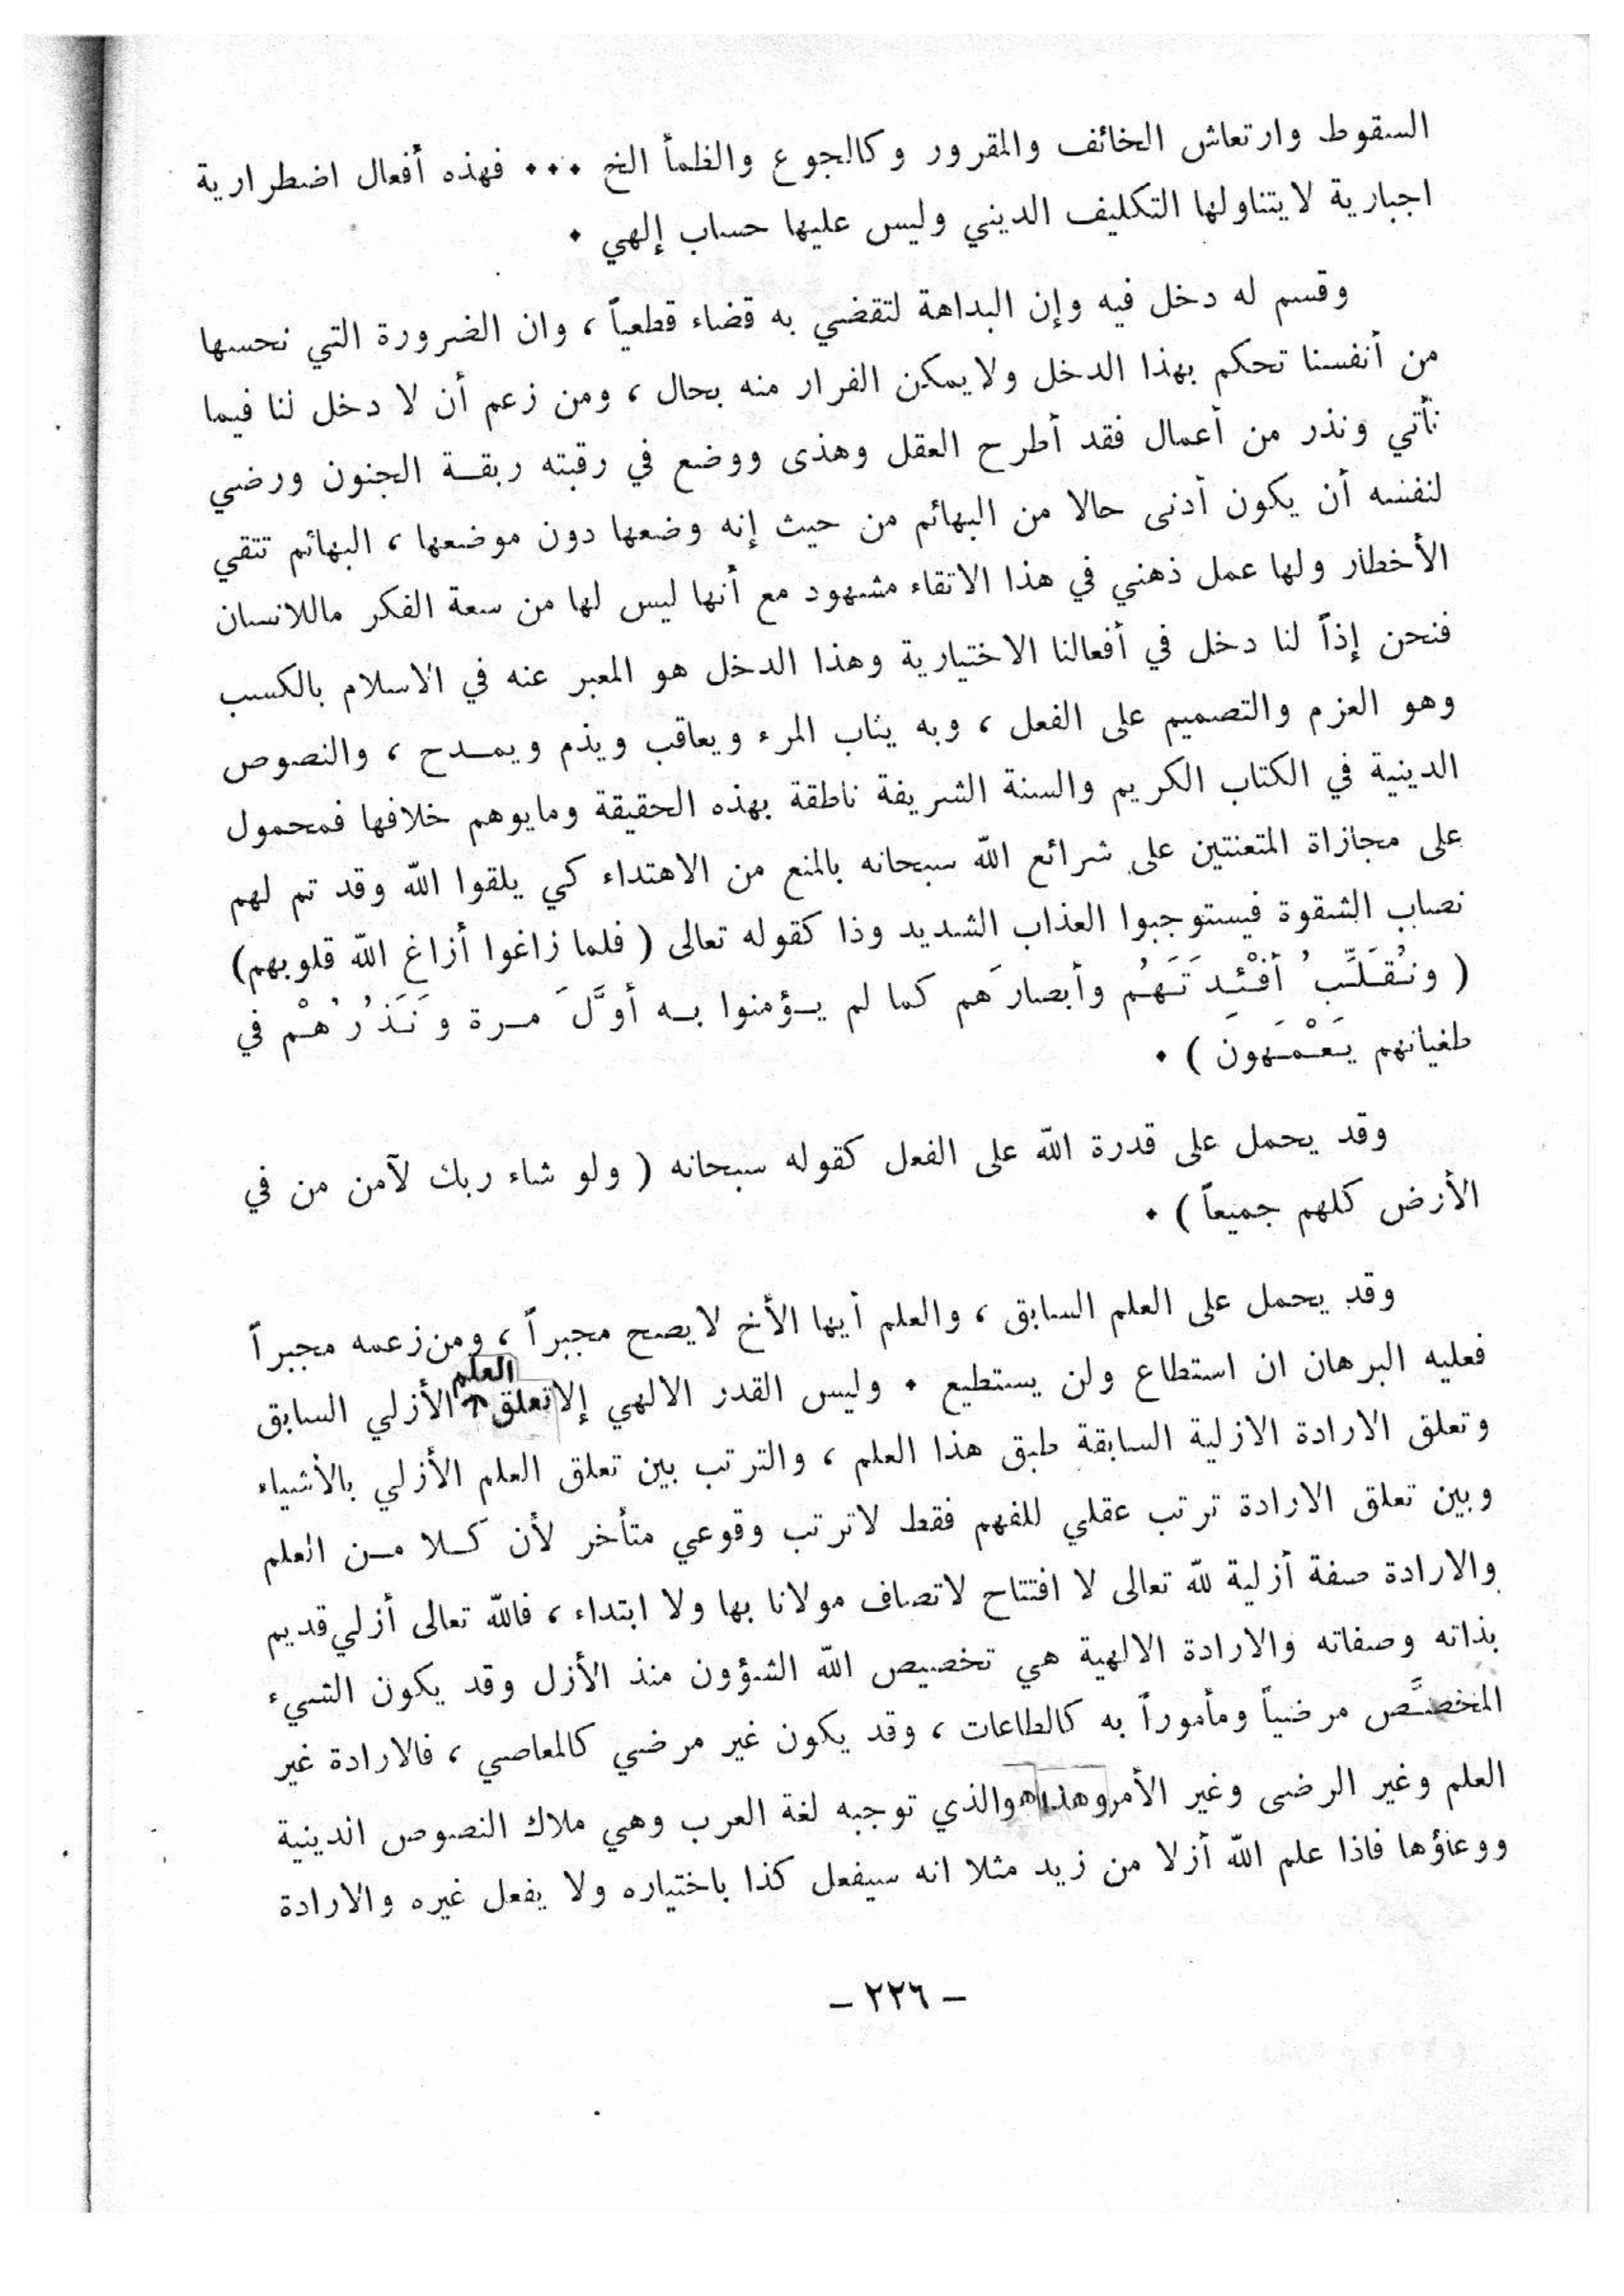 السقوط وارتعاش الخائف والمقرور وكالجوع والظمأ الخ ... فهذه أفعال اضطرارية
اجبارية لايتناولها التكليف الديني وليس عليها حساب إلهي .
وقسم له دخل فيه وإن البداهة لتقضي به قضاء قطعياً ، وان الضرورة التي نحسها
من أنفسنا تحكم بهذا الدخل ولايمكن الفرار منه بحال ، ومن زعم أن لا دخل لنا فيما
نأتي ونذر من أعمال فقد أطرح العقل وهذى ووضع في رقبته ربقــة الجنون ورضي
لنفسه أن يكون أدنى حالا من البهائم من حيث إنه وضعها دون موضعها ، البهائم تتقي
الأخطار ولها عمل ذهني في هذا الاتقاء مشهود مع أنها ليس لها من سعة الفكر ماللانسان
فنحن إذاً لنا دخل في أفعالنا الاختيارية وهذا الدخل هو المعبر عنه في الاسلام بالكسب
وهو العزم والتصميم على الفعل ، وبه يثاب المرء ويعاقب ويذم ويمــدح ، والنصوص
الدينية في الكتاب الكريم والسنة الشريفة ناطقة بهذه الحقيقة ومايوهم خلافها فمحمول
على مجازاة المتعنتين على شرائع الله سبحانه بالمنع من الاهتداء كي يلقوا الله وقد تم لهم
نصاب الشقوة فيستوجبوا العذاب الشديد وذا كقوله تعالى ( فلما زاغوا أزاغ الله قلوبهم)
( ونُقَلِّبُ أفْئِدَتَهُم وأبصارَهم كما لم يــؤمنوا بــه أوَّلَ مــرة ونَذَرُهُمْ في
طغيانهم يَعْمَهون ) .
وقد يحمل على قدرة الله على الفعل كقوله سبحانه ( ولو شاء ربك لآمن من في
الأرض كلهم جميعاً ) .
وقد يحمل على العلم السابق ، والعلم أيها الأخ لايصح مجبراً ، ومن زعمه مجبراً
فعليه البرهان ان استطاع ولن يستطيع . وليس القدر الالهي إلا تعلق العلم الأزلي السابق
وتعلق الارادة الازلية السابقة طبق هذا العلم ، والترتب بين تعلق العلم الأزلي بالأشياء
وبين تعلق الارادة ترتب عقلي للفهم فقط لاترتب وقوعي متأخر لأن كــلا مــن العلم
والارادة صفة أزلية لله تعالى لا افتتاح لاتصاف مولانا بها ولا ابتداء ، فالله تعالى أزلي قديم
بذاته وصفاته والارادة الالهية هي تخصيص الله الشؤون منذ الأزل وقد يكون الشيء
المخصَّص مرضياً ومأموراً به كالطاعات ، وقد يكون غير مرضي كالمعاصي ، فالارادة غير
العلم وغير الرضى وغير الأمر وهذا هو الذي توجبه لغة العرب وهي ملاك النصوص الدينية
ووعاؤها فاذا علم الله أزلا من زيد مثلا انه سيفعل كذا باختياره ولا يفعل غيره والارادة
– ٢٢٦ –